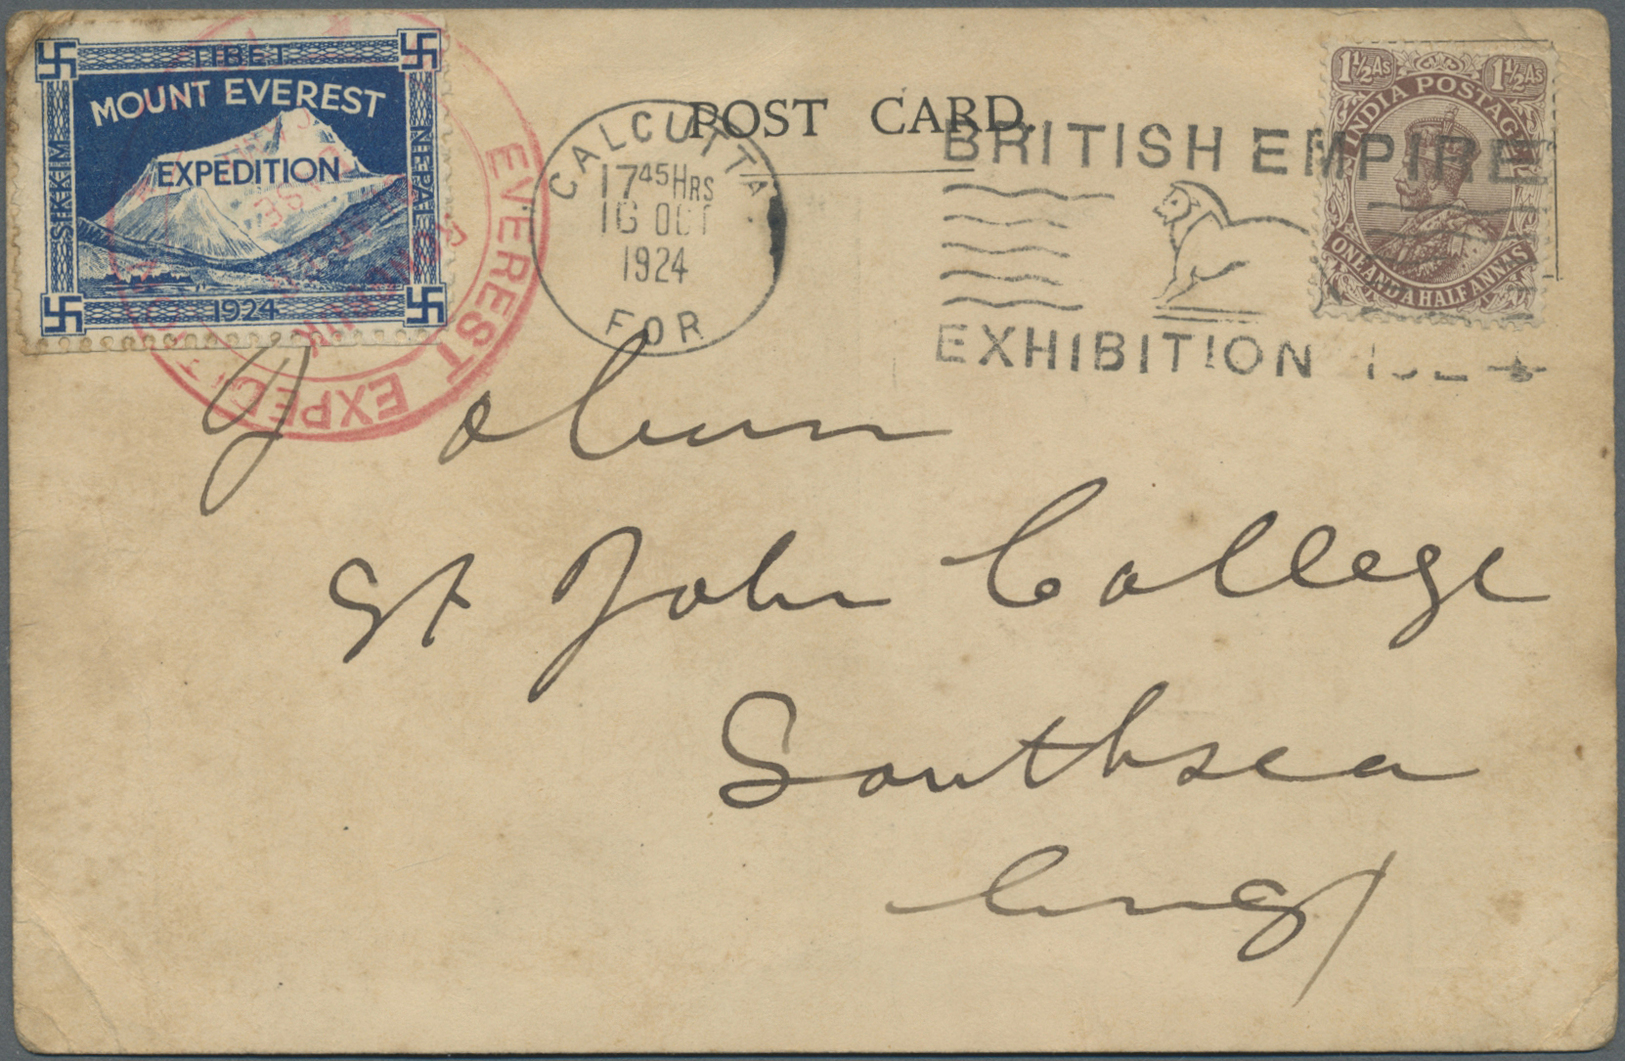 TIBET
MOUNT EVEREST
EXPEDITION
SIKKIM
NEPAL
1924
EVEREST EXPED
POST CARD.
CALCUTTA
17 45 HRS
16 OCT
1924
FOR
BRITISH EMPIRE
EXHIBITION
1½As 1½As
INDIA POSTAGE
ONE AND A HALF ANNAS
St John College
Southsea
Eng/